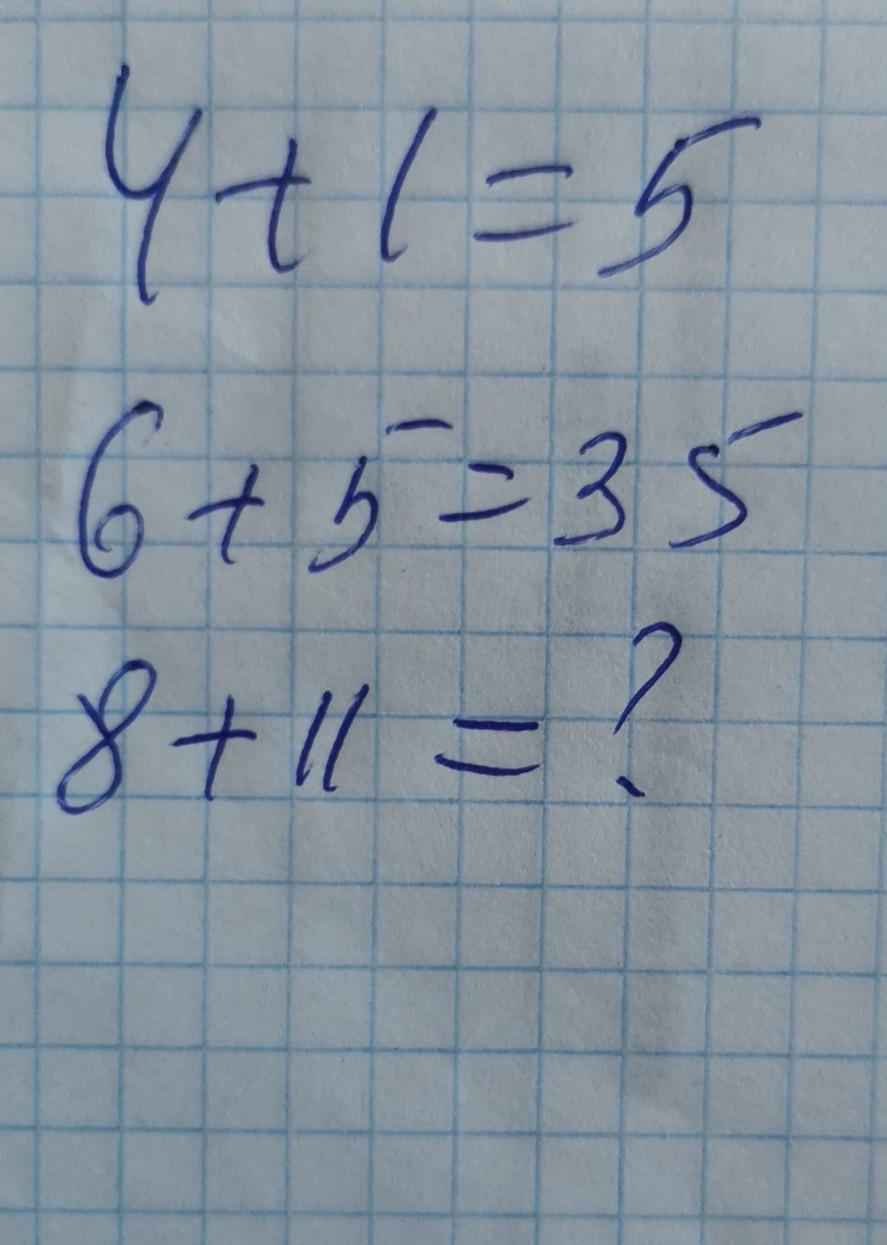 4+1=5
6+5=35
8+11=?